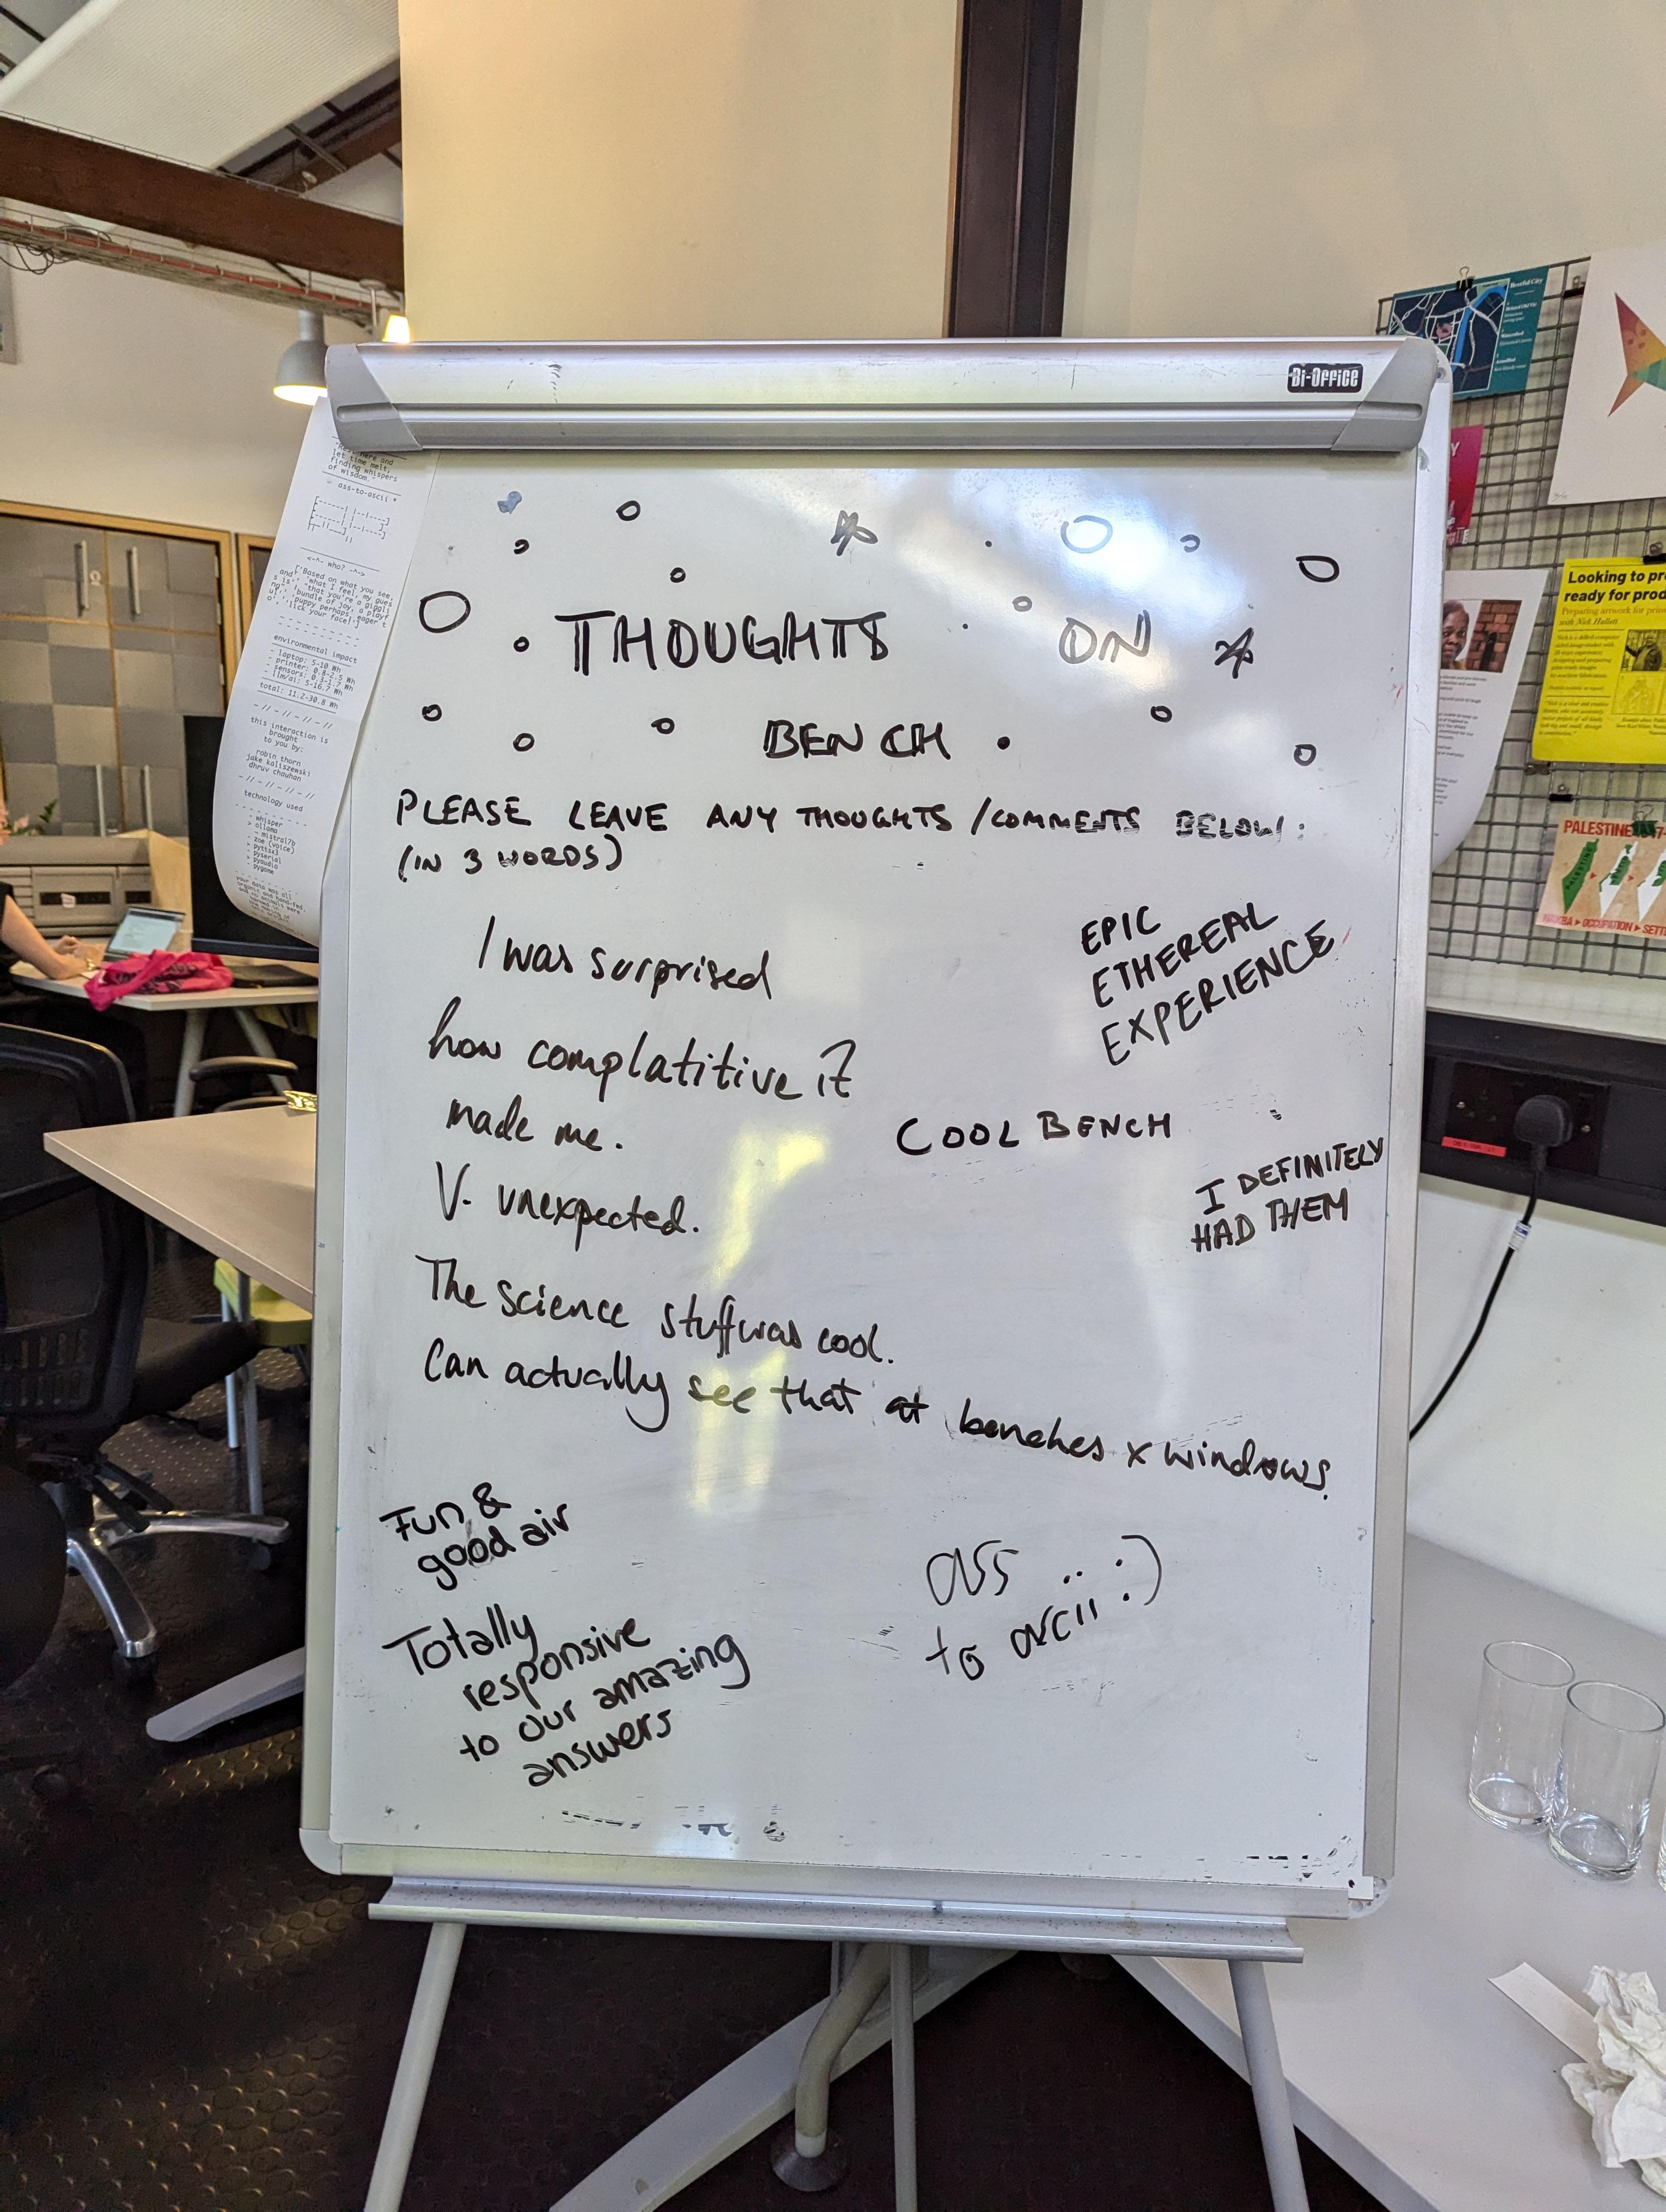 Bi-Office
THOUGHTS ON
BENCH
PLEASE LEAVE ANY THOUGHTS / COMMENTS BELOW:
(IN 3 WORDS)
I was surprised
how complatitive it
made me.
V. unexpected.
The science stuff was cool.
Can actually see that at benches x windows.
Fun &
good air
Totally
responsive
to our amazing
answers
EPIC
ETHEREAL
EXPERIENCE
COOL BENCH
I DEFINITELY
HAD THEM
ass
to ascii :)
here and
let time melt,
finding whispers
of wisdom."
ass-to-ascii *
<-^- who? -^->
['Based on what you see,
environmental impact
- laptop: 5-10 Wh
- printer: 0.8-2.5 Wh
- sensors: 0.3-1.7 Wh
- llm/ai: 5-16.7 Wh
total: 11.2-30.8 Wh
- // - // - // - //
this interaction is
brought
to you by:
robin thorn
jake kaliszewski
dhruv chauhan
- // - // - // - //
technology used
- whisper
- ollama
- mistral7b
- zoe (voice)
- pyttsx3
- pyserial
- pyaudio
- pygame
Looking to pr
ready for prod
Preparing artwork for prin
with Nick Hallett
PALESTINE
OCCUPATION